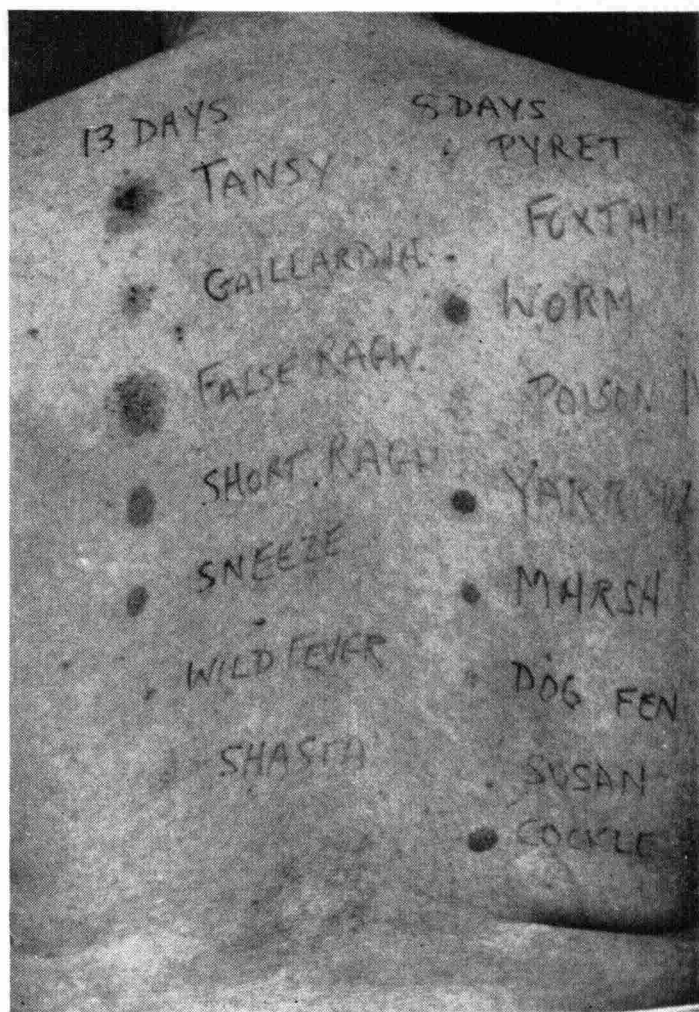 13 DAYS
TANSY
GAILLARDIA
FALSE RAGW.
SHORT RAGW
SNEEZE
WILD FEVER
SHASTA
8 DAYS
PYRET
WORM
POISON
YARROW
MARSH
DOG FEN
SUSAN
COCKLE